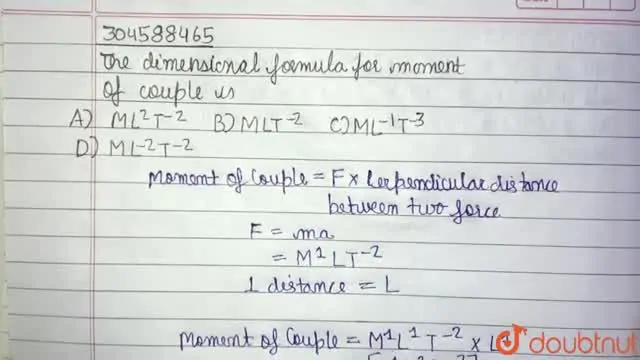 304588465
The dimensional formula for moment
of couple is
A) ML²T⁻² B) MLT⁻² C) ML⁻¹T⁻³
D) ML⁻²T⁻²
Moment of Couple = F × Perpendicular distance
between two force
F = ma
= M¹LT⁻²
⊥ distance = L
Moment of Couple = M¹L¹T⁻² × L
doubtnut